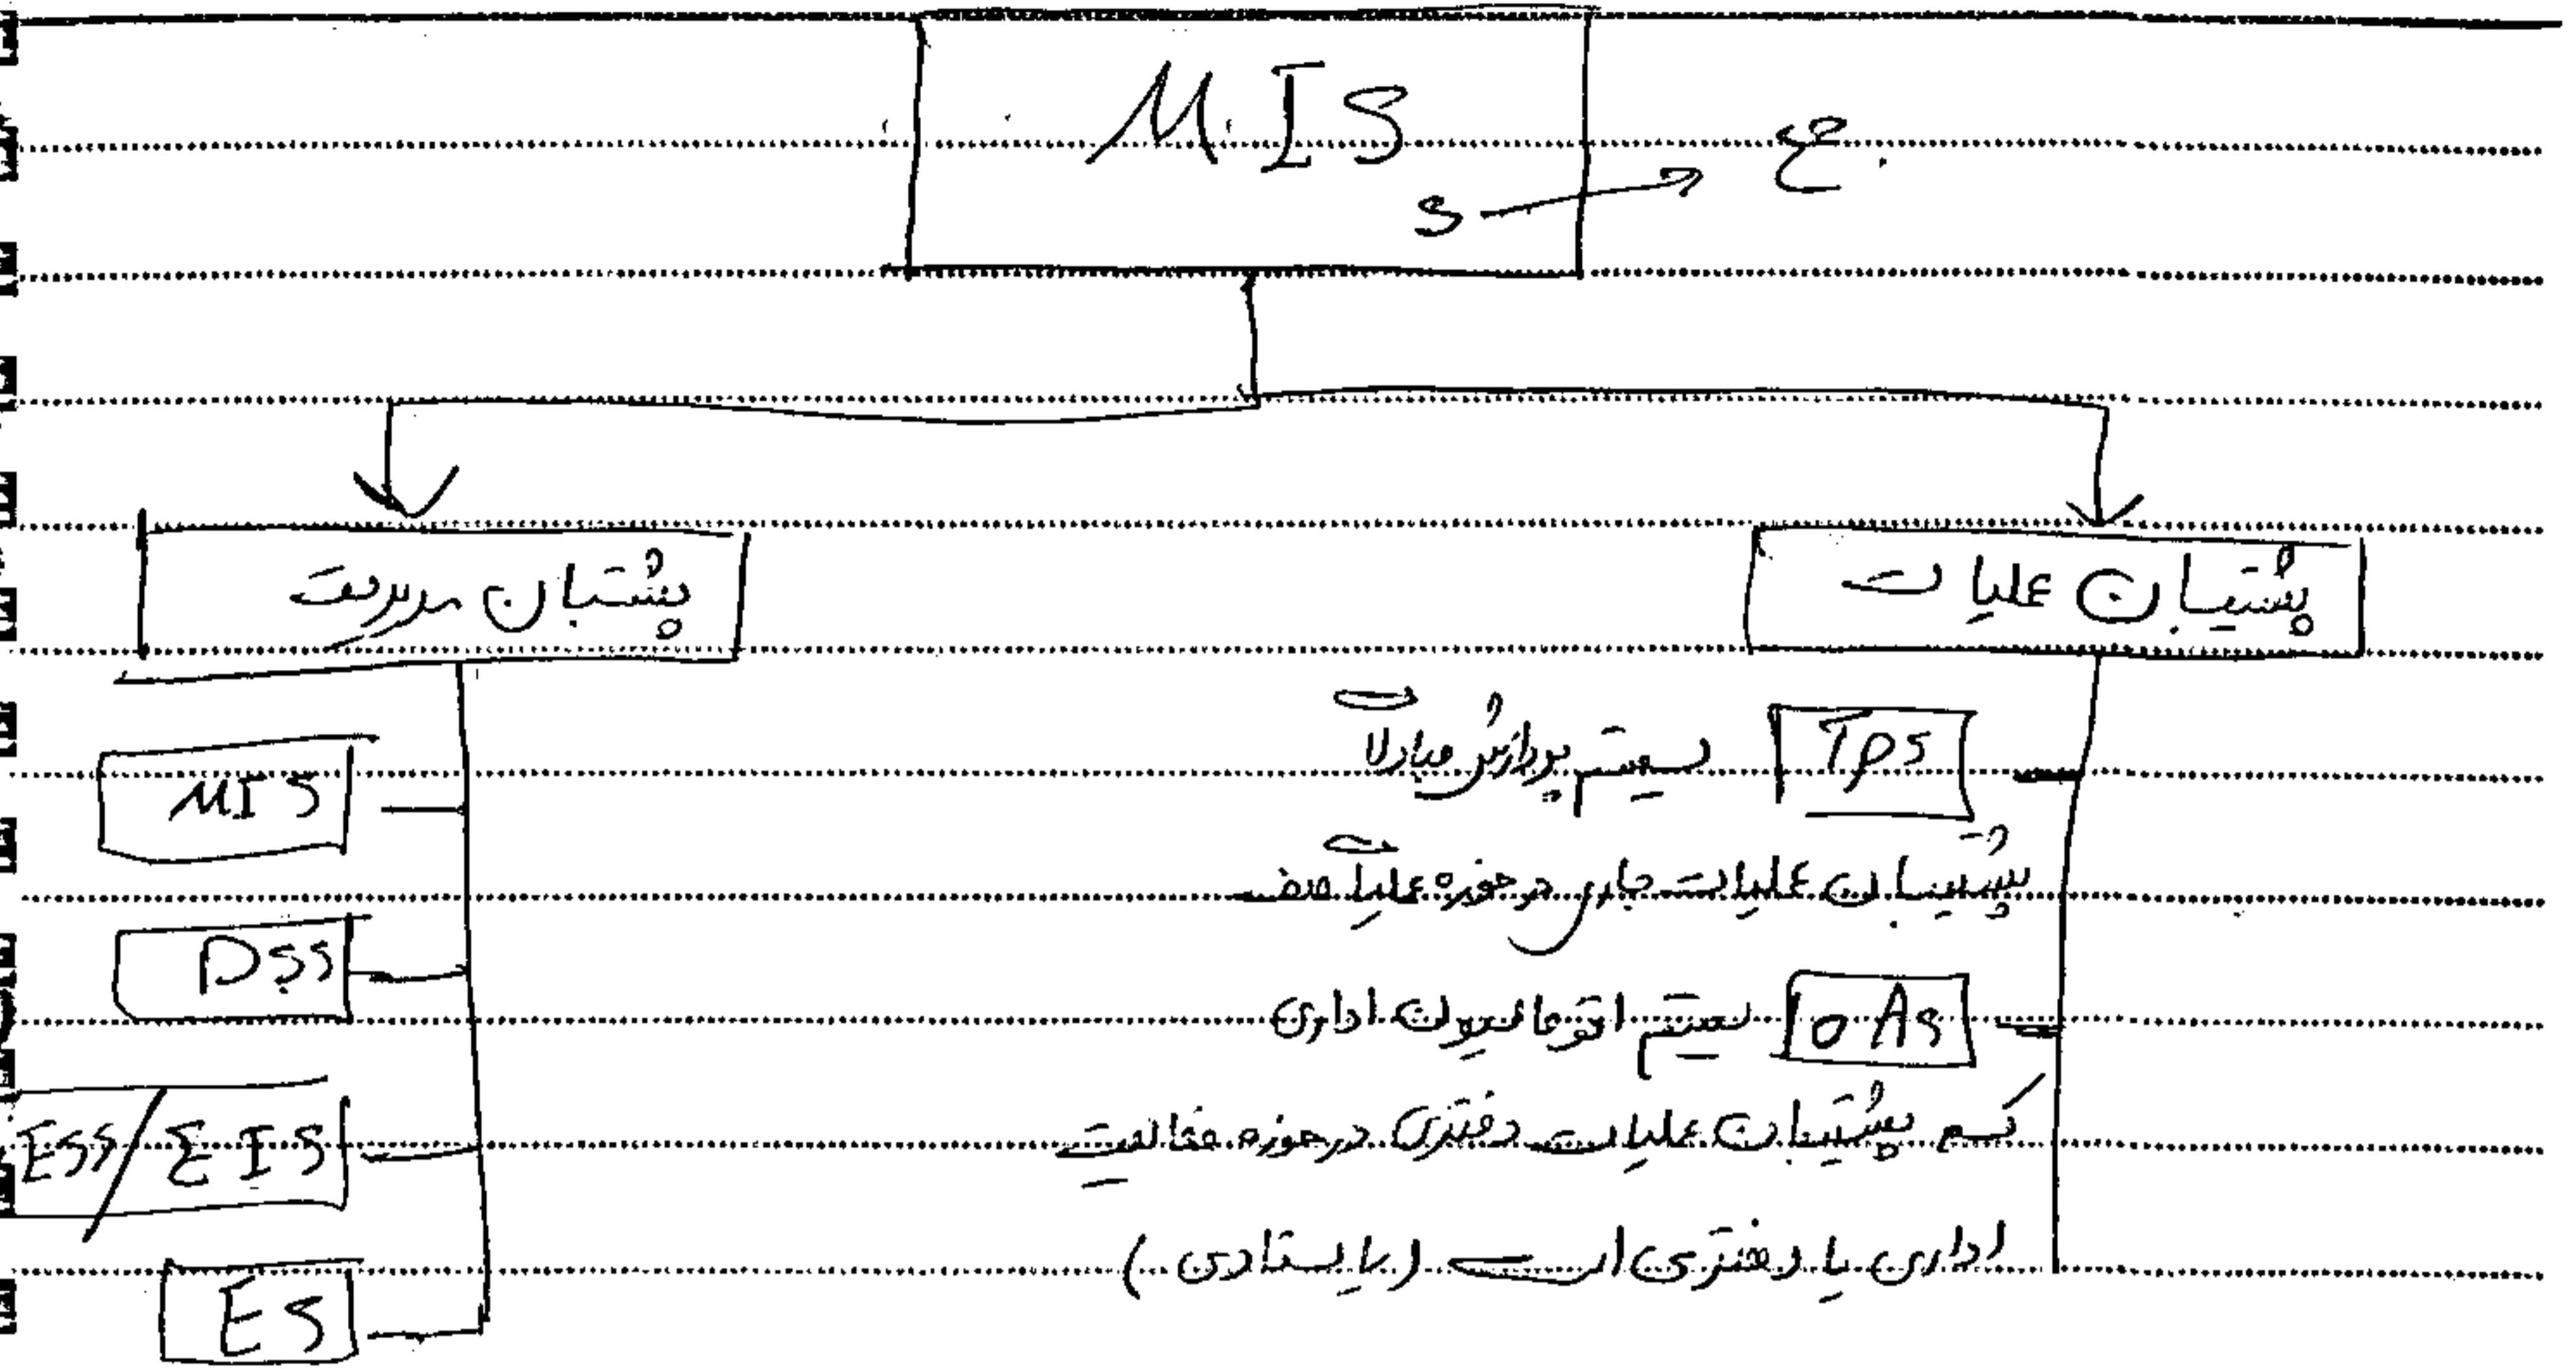 M.IS
S → جمع
پشتیبان عملیات
پشتیبان مدیریت
TPS سیستم پردازش مبادلات
پشتیبان عملیات جاری در حوزه عملیات صف
OAS سیستم اتوماسیون اداری
پشتیبان عملیات دفتری در حوزه فعالیت
اداری یا دفتری است (یا ستادی)
MIS
DSS
ESS/EIS
ES